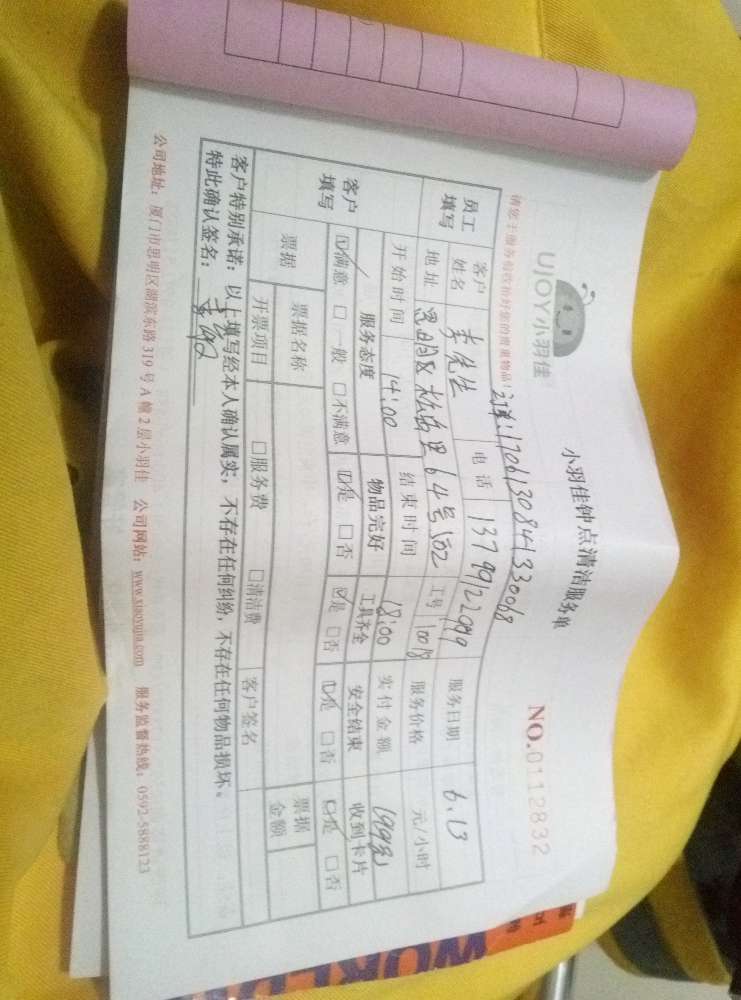 小羽佳钟点清洁服务单
UJOY小羽佳
NO.0112832
请您主服务前收拾好您的贵重物品!
订单:1706130841330068
员工填写 客户姓名 李先生 电话 服务日期 6.13
地址 思明区 64号502 工号 10018 服务价格 元/小时
开始时间 14:00 结束时间 18:00 实付金额 199元
客户填写 服务态度 物品完好 工具齐全 安全结束 收到卡片
☑满意 □一般 □不满意 ☑是 □否 ☑是 □否 ☑是 □否 ☑是 □否
票据 票据名称 票据金额
开票项目 □服务费 □清洁费 客户签名
客户特别承诺:以上填写经本人确认属实,不存在任何纠纷,不存在任何物品损坏。
特此确认签名:
公司地址:厦门市思明区湖滨东路319号A幢2层小羽佳 公司网站:www.xiaoyujia.com 服务监督热线:0592-5888123
WORLD